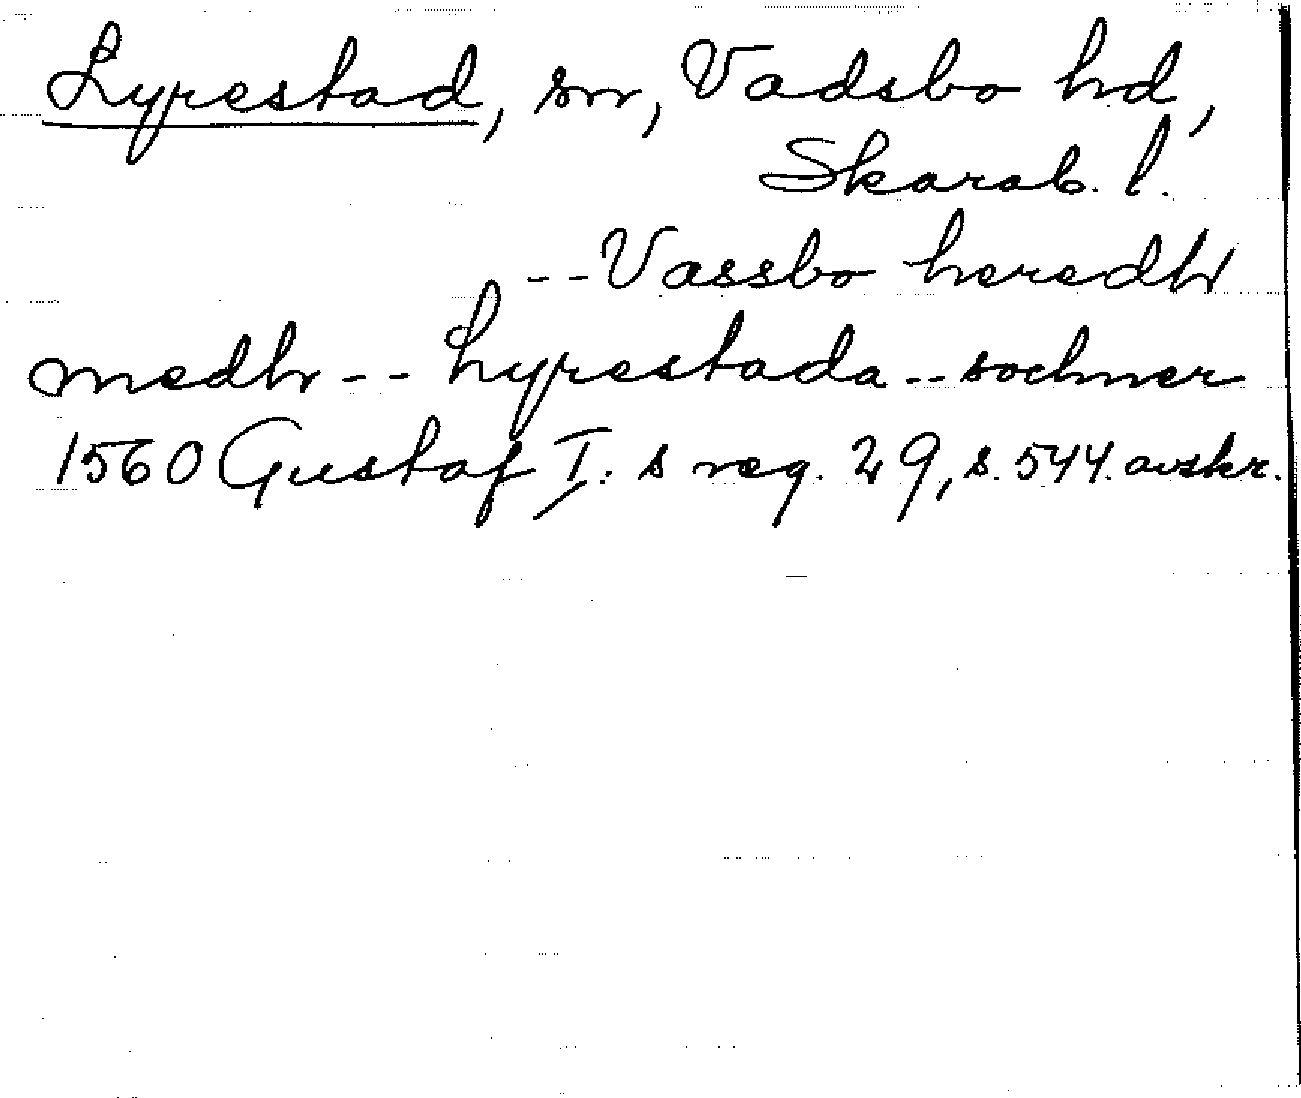 Lyrestad, sn, Vadsbo hd,
Skarab. l.
-- Vassbo heredh
medh -- Lyrestada -- sochner
1560 Gustaf I: s reg. 29, s. 544. avskr.